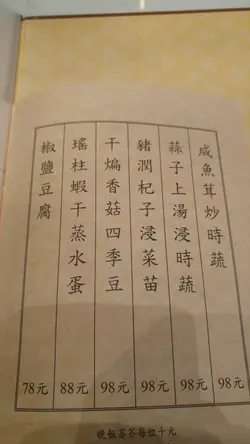 咸魚茸炒時蔬
98元
蒜子上湯浸時蔬
98元
豬潤杞子浸菜苗
98元
干煸香菇四季豆
98元
瑤柱蝦干蒸水蛋
88元
椒鹽豆腐
78元
晚飯茶芥每位十元